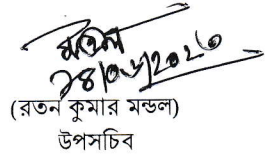 রতন
১৪/০৬/২০২৩
(রতন কুমার মন্ডল)
উপসচিব